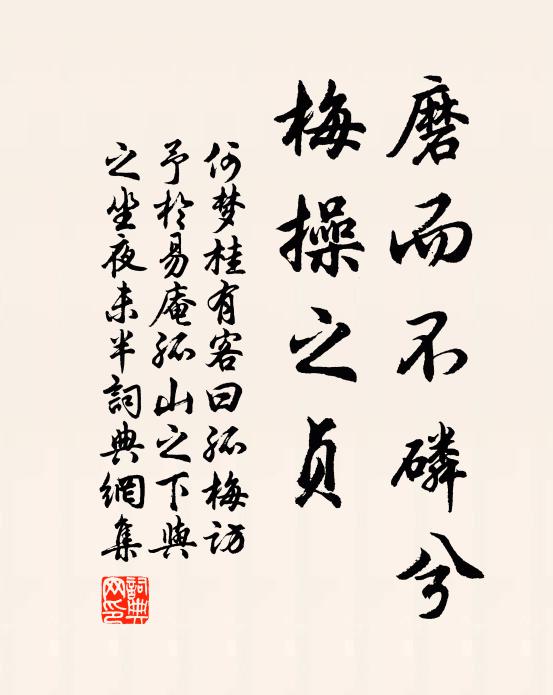 磨而不磷兮
梅操之贞
何梦桂有客曰孤梅访
予于易庵孤山之下与
之坐夜未半词典网集
詞典
网印